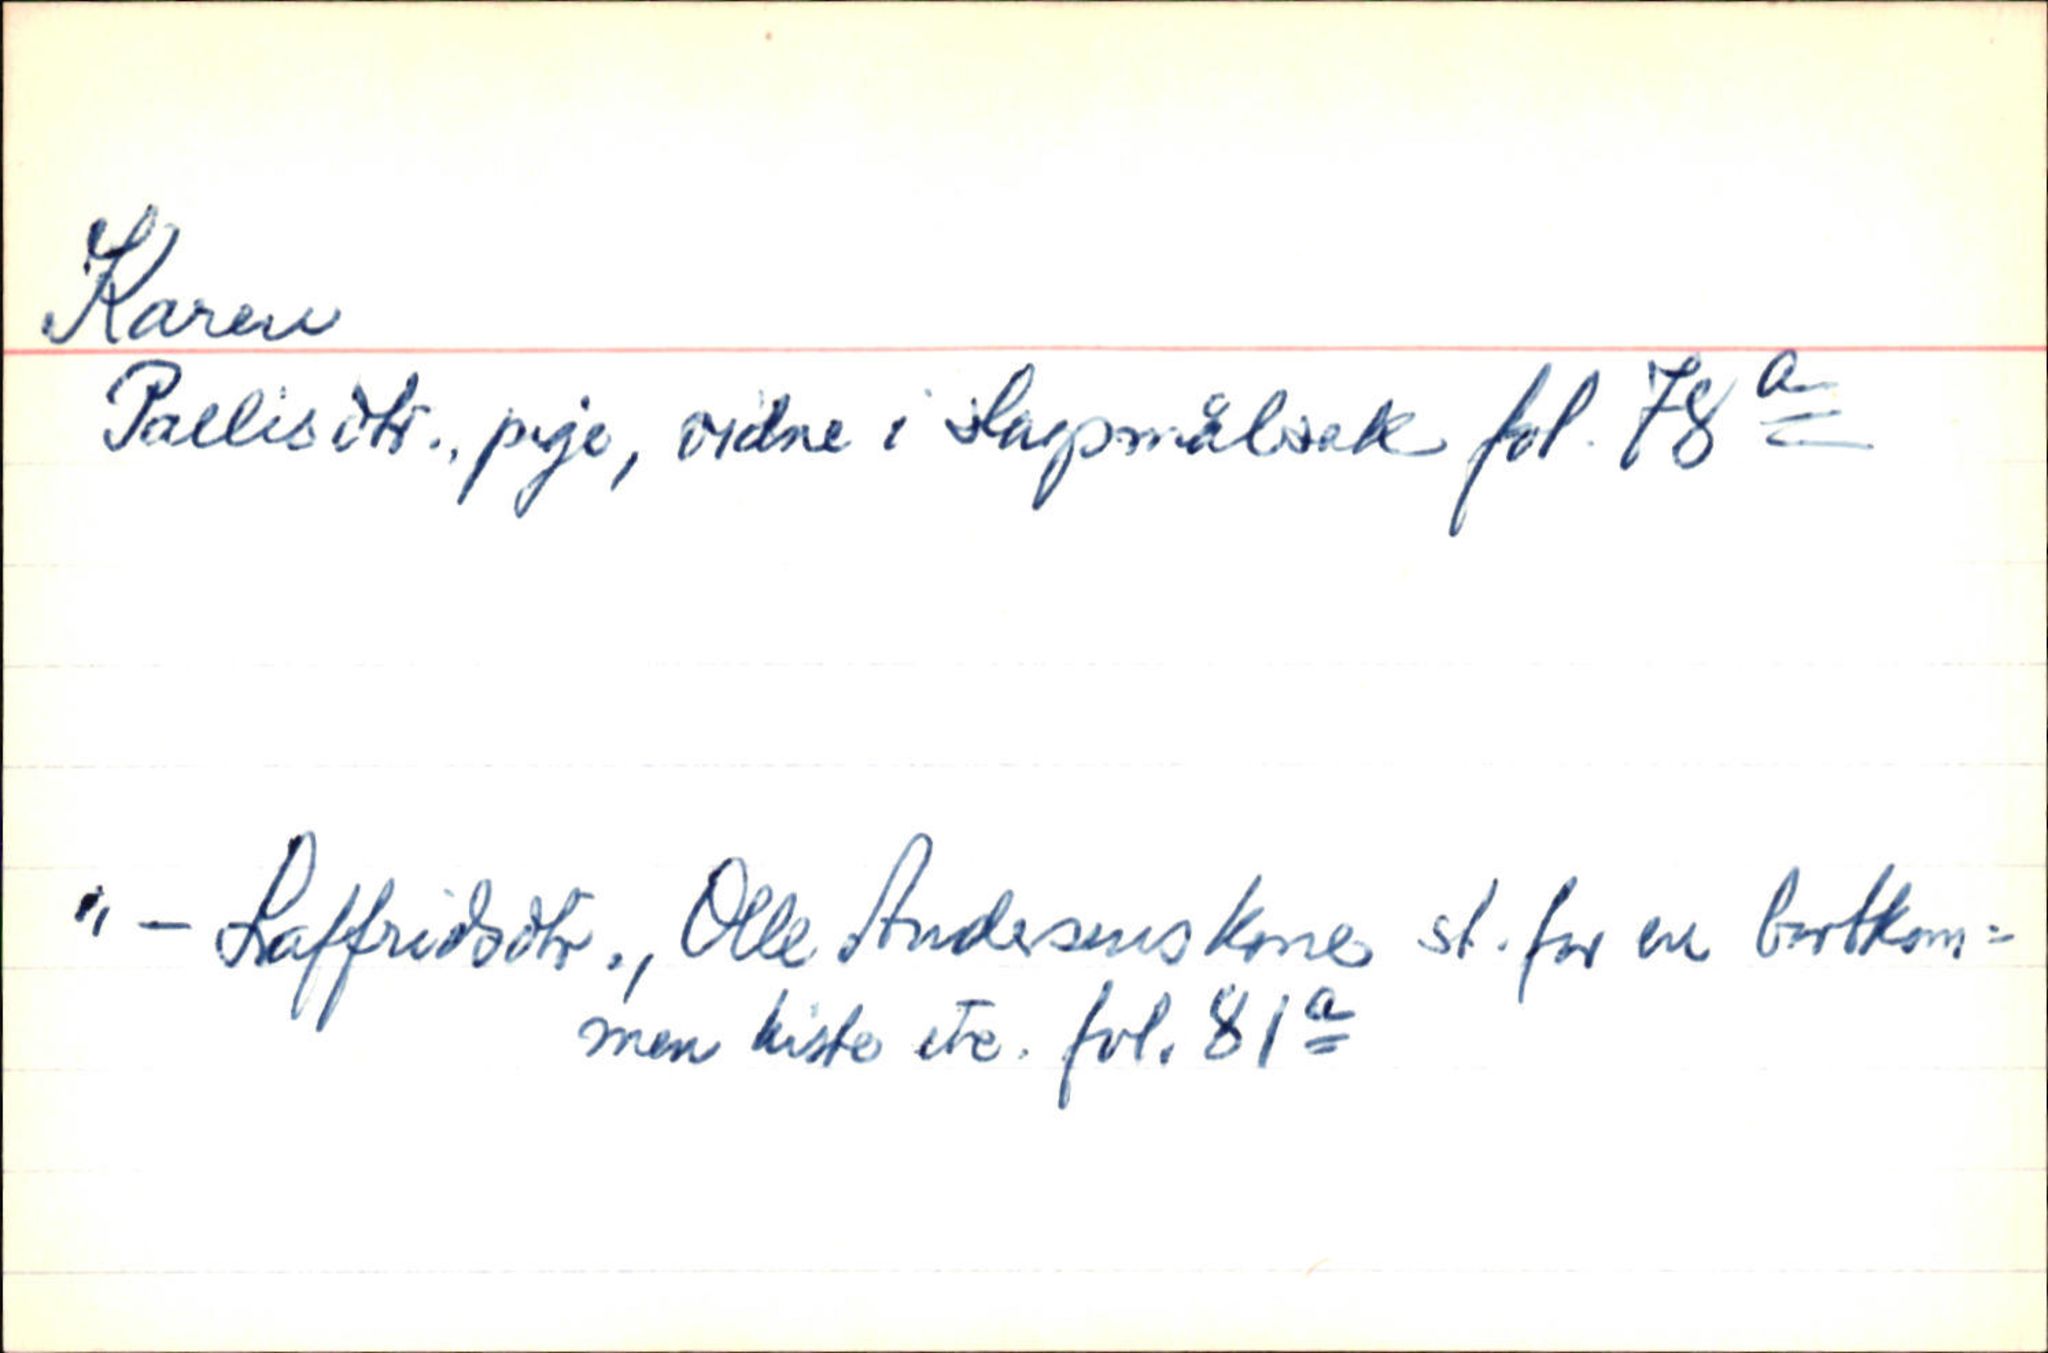 Karen
Pallisdtr., pige, vidne i slagsmålsak fol. 78 a
" - Laffridsdtr., Olle Andersens kone st. for en bortkom=
men kiste etc. fol. 81 a